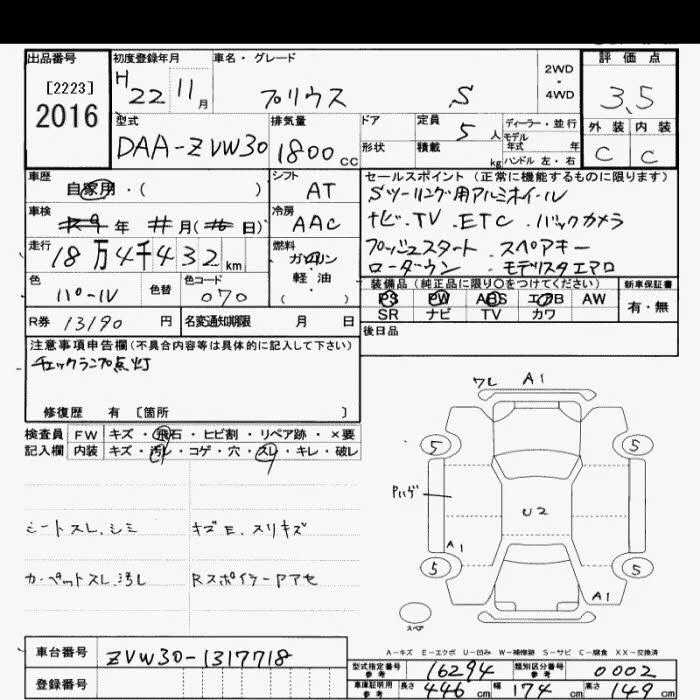 出品番号
[2223]
2016
初度登録年月
H22 11月
車名・グレード
プリウス S
2WD
・
4WD
評価点
3.5
外装 内装
C C
型式
DAA-ZVW30
排気量
1800cc
ドア
形状
定員 5人
積載 kg
ディーラー・並行
モデル
年式 年
ハンドル 左・右
車歴
自家用・( )
シフト
AT
車検
年 月( 日)
冷房
AAC
走行
18万4千432km
燃料
ガソリン
軽・油
( )
色
パール
色替
色コード
070
R券 13190円
名変通知期限 月 日
セールスポイント(正常に機能するものに限ります)
Sツーリング用アルミホイール
ナビ.TV.ETC.バックカメラ
プッシュスタート.スペアキー
ローダウン.モデリスタエアロ
装備品(純正品に限り○をつけてください)
PS PW ABS エアB AW
SR ナビ TV カワ
新車保証書
有・無
後日品
注意事項申告欄(不具合内容等は具体的に記入して下さい)
チェックランプ点灯
修復歴 有 [箇所 ]
検査員 FW キズ・飛石・ヒビ割・リペア跡・×要
記入欄 内装 キズ・汚レ・コゲ・穴・スレ・キレ・破レ
シートスレ.シミ
キズE.スリキズ
カーペットスレ.汚レ
RスポイラーPアセ
ワレ A1
5 5
Pハゲ
U2
A1
5 5
A1
スペア
A-キズ E-エクボ U-凹み W-補修跡 S-サビ C-腐食 XX-交換済
車台番号 ZVW30-1317718
登録番号
型式指定番号
参考
16294
類別区分番号
参考
0002
車庫証明用
参考
長さ 446cm 幅 174cm 高さ 149cm